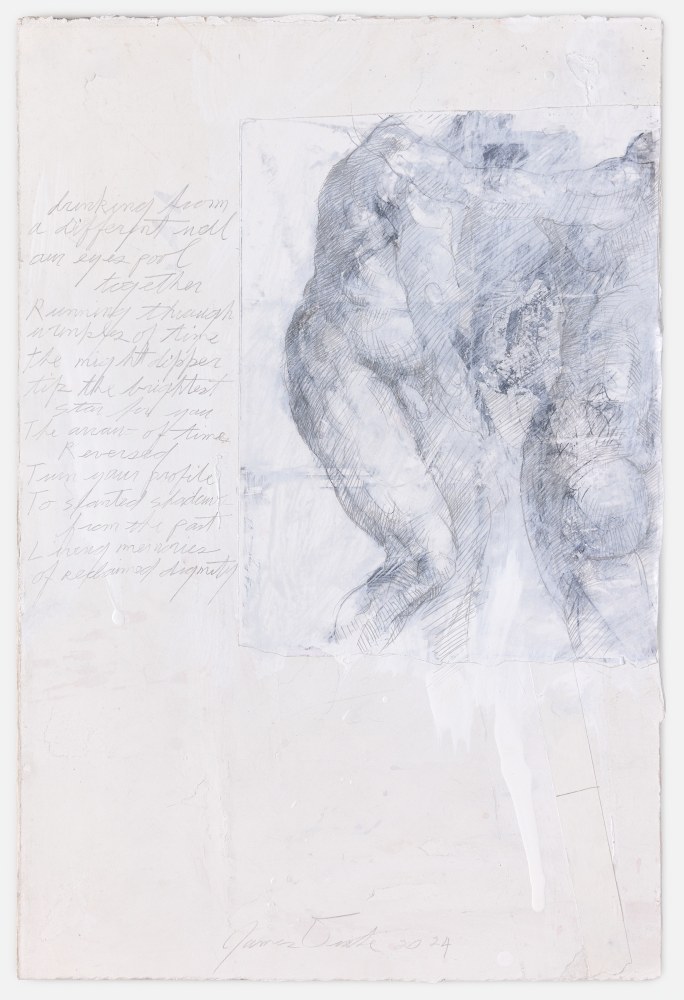 drinking from
a different
our eyes pool
together
Running through
wrinkles of time
the night dipper
tip the brightest
star for you
The arrow of time
Reversed
Turn your profile
To slanted shadows
from the past
Living memories
of reclaimed dignity
James 2024